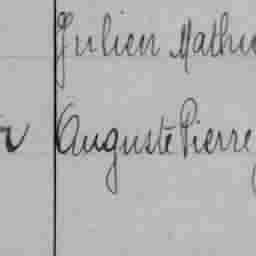 Julien Mathu
Auguste Pierre